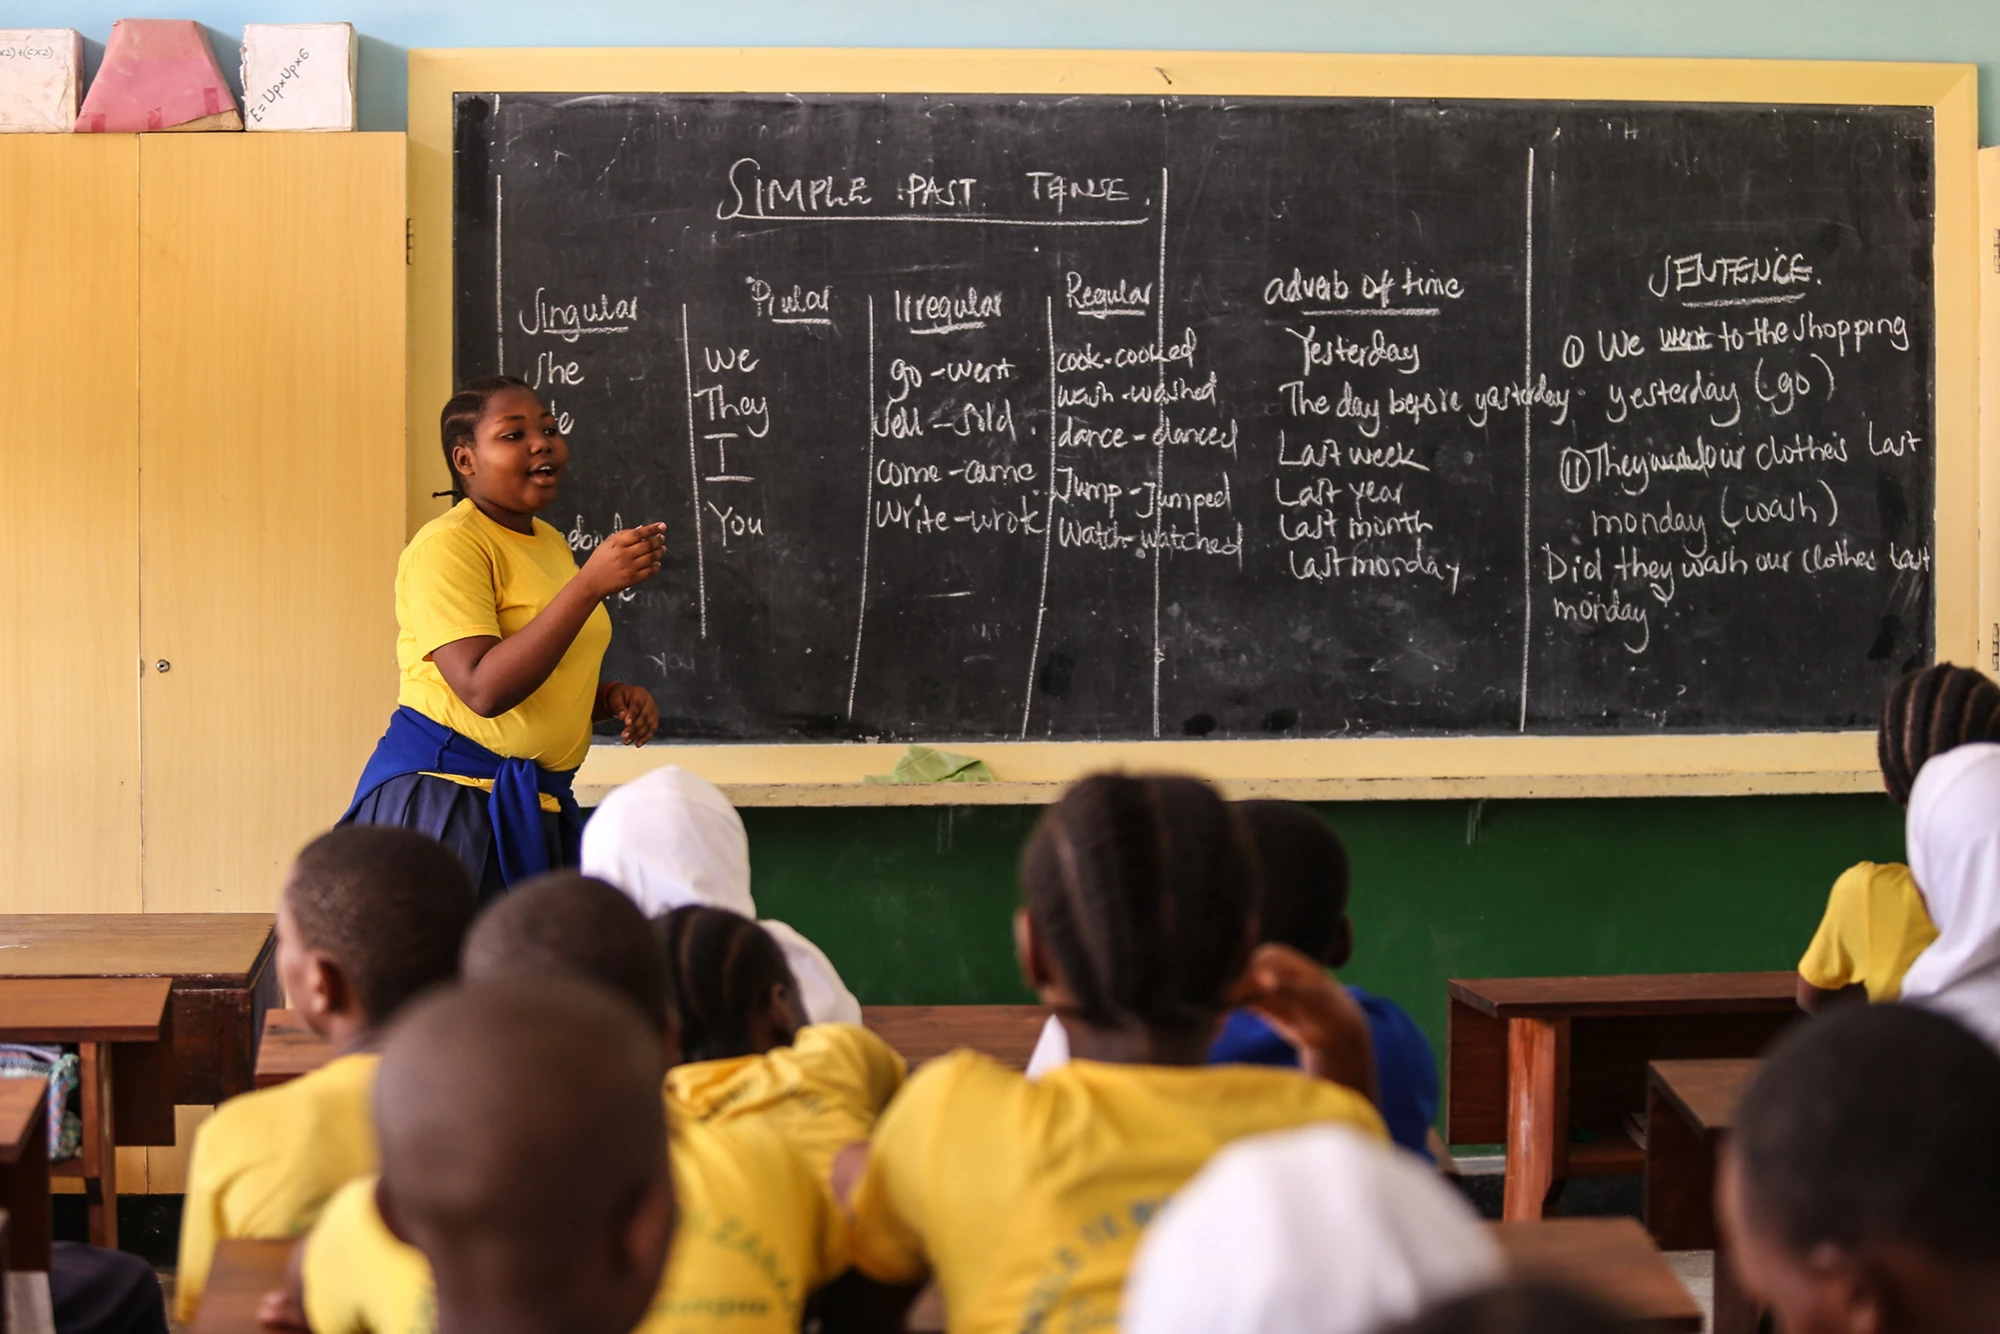 x2)+(cx2)
E=UpxUpx6
SIMPLE PAST TENSE.
Singular
She
Plular
We
They
I
You
Irregular
go - went
Sell - Sold.
come - came
Write - wrote
Regular
cook - cooked
wash - washed
dance - danced
Jump - Jumped
Watch - watched
adverb of time
Yesterday
The day before yesterday
Last week
Last year
Last month
Last monday
SENTENCE.
(i) We went to the shopping
yesterday (go)
(ii) They our clothes Last
monday (wash)
Did they wash our clothes Last
monday